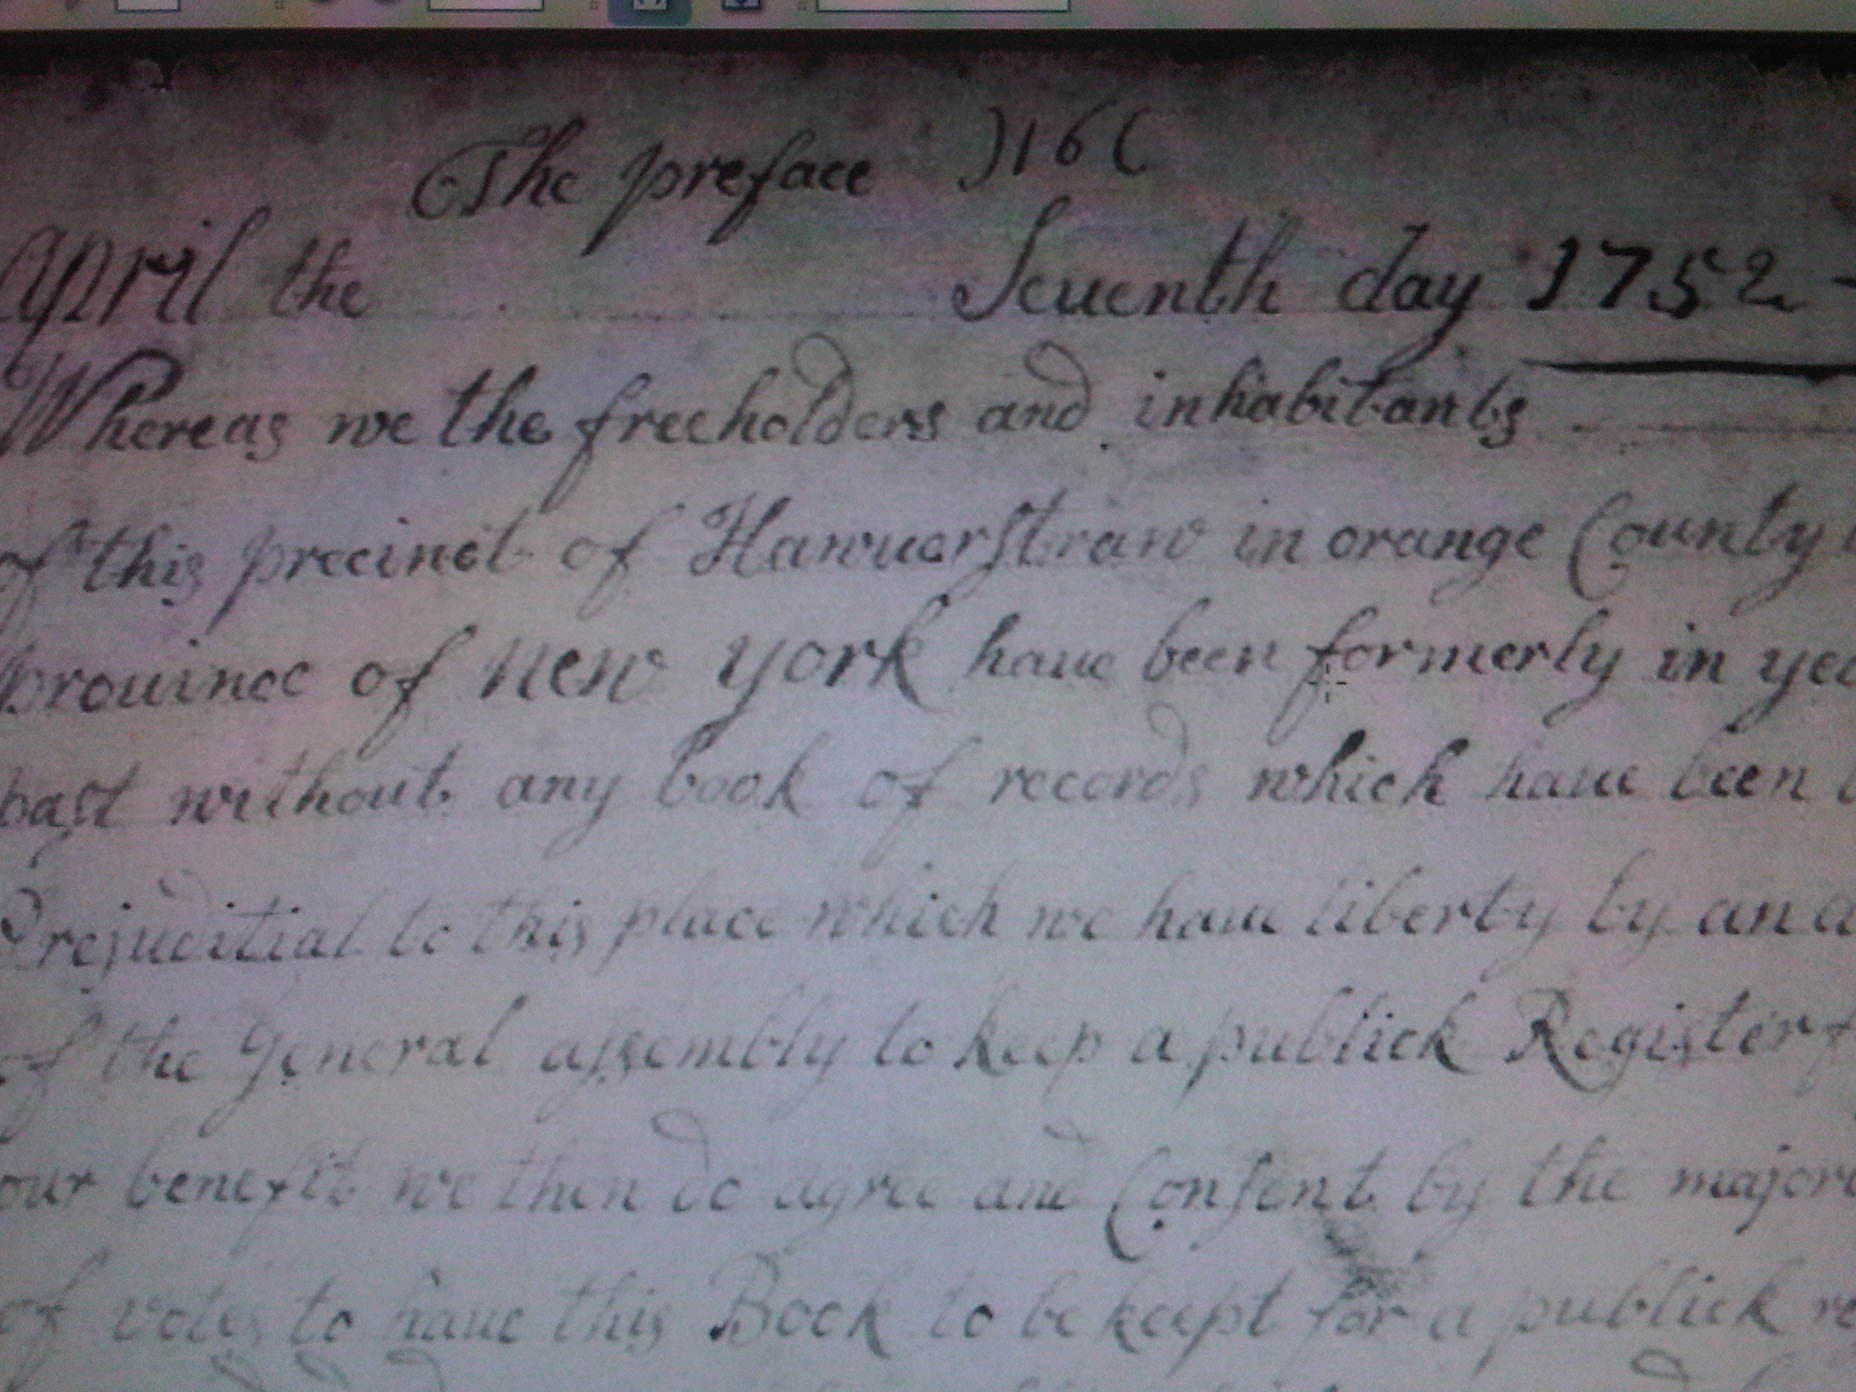 The preface )16(
April the Seuenth day 1752 -
Whereas we the freeholders and inhabitants
of this precinct of Hawuerstraw in orange County
prouince of new york haue been formerly in yea
past without any book of records which haue been
Prejuditial to this place which we haue liberty by an a
of the General assembly to keep a publick Register f
our benefit we then do agree and Consent by the majori
of votes to haue this Book to be keept for a publick re